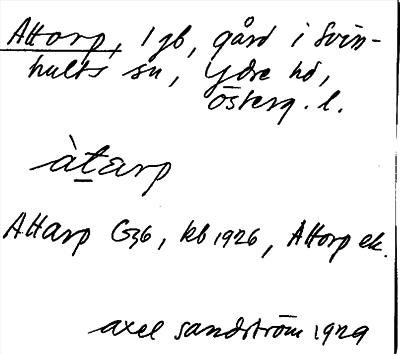 Attorp, 1 gb, gård i Svin-
hults sn, Ydre hd,
Österg. l.
àtarp
Attarp G36, kb 1926, Attorp ek.
Axel Sandström 1929